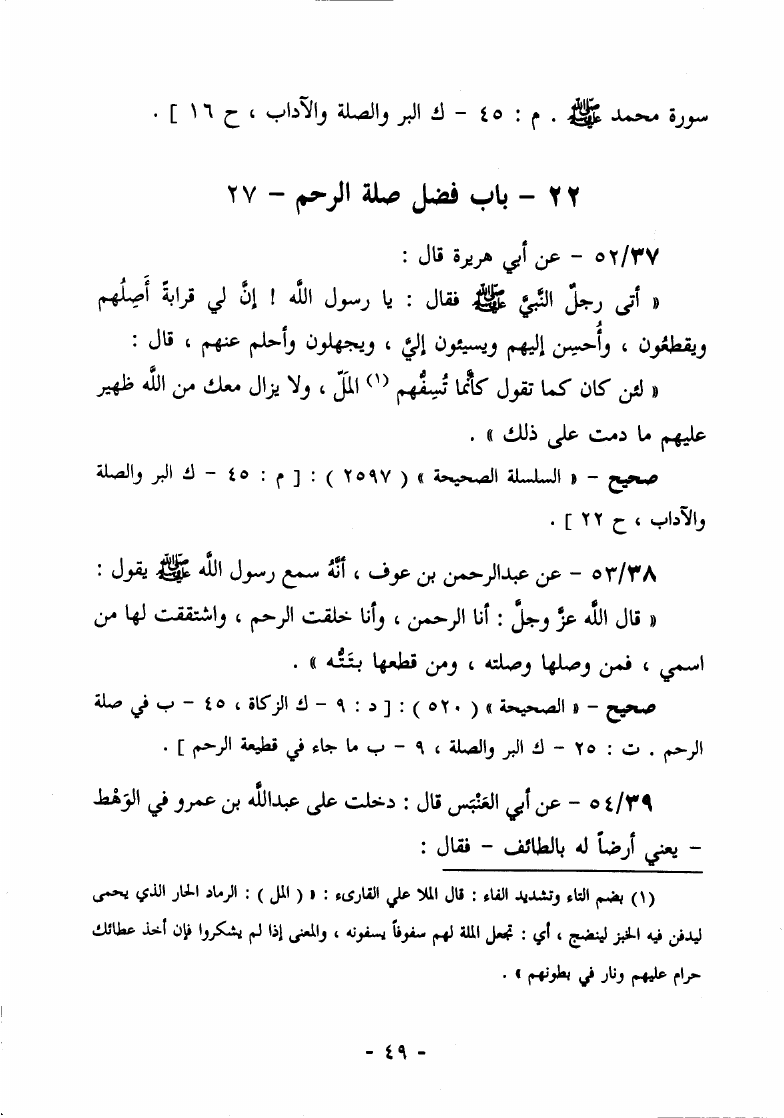 سورة محمد ﷺ . م : ٤٥ - ك البر والصلة والآداب ، ح ١٦ ] .
٢٢ - باب فضل صلة الرحم - ٢٧
٥٢/٣٧ - عن أبي هريرة قال :
« أتى رجلٌ النَّبيَّ ﷺ فقال : يا رسول اللَّه ! إنَّ لي قرابةً أَصِلُهم
ويقطعُون ، وأُحسِن إليهم ويسيئون إليَّ ، ويجهلون وأحلم عنهم ، قال :
« لئن كان كما تقول كأنَّما تُسِفُّهم (١) المَلَّ ، ولا يزال معك من اللَّه ظهير
عليهم ما دمت على ذلك » .
صحيح - « السلسلة الصحيحة » ( ٢٥٩٧ ) : [ م : ٤٥ - ك البر والصلة
والآداب ، ح ٢٢ ] .
٥٣/٣٨ - عن عبدالرحمن بن عوف ، أنَّهُ سمع رسول اللَّه ﷺ يقول :
« قال اللَّه عزَّ وجلَّ : أنا الرحمن ، وأنا خلقت الرحم ، واشتققت لها من
اسمي ، فمن وصلها وصلته ، ومن قطعها بتَتُّه » .
صحيح - « الصحيحة » ( ٥٢٠ ) : [ د : ٩ - ك الزكاة ، ٤٥ - ب في صلة
الرحم . ت : ٢٥ - ك البر والصلة ، ٩ - ب ما جاء في قطيعة الرحم ] .
٥٤/٣٩ - عن أبي العَنْبَس قال : دخلت على عبداللَّه بن عمرو في الوَهْط
- يعني أرضاً له بالطائف - فقال :
(١) بضم التاء وتشديد الفاء : قال الملا علي القارىء : « ( المل ) : الرماد الحار الذي يحمى
ليدفن فيه الخبز لينضج ، أي : تجعل الملة لهم سفوفاً يسفونه ، والمعنى إذا لم يشكروا فإن أخذ عطائك
حرام عليهم ونار في بطونهم » .
- ٤٩ -